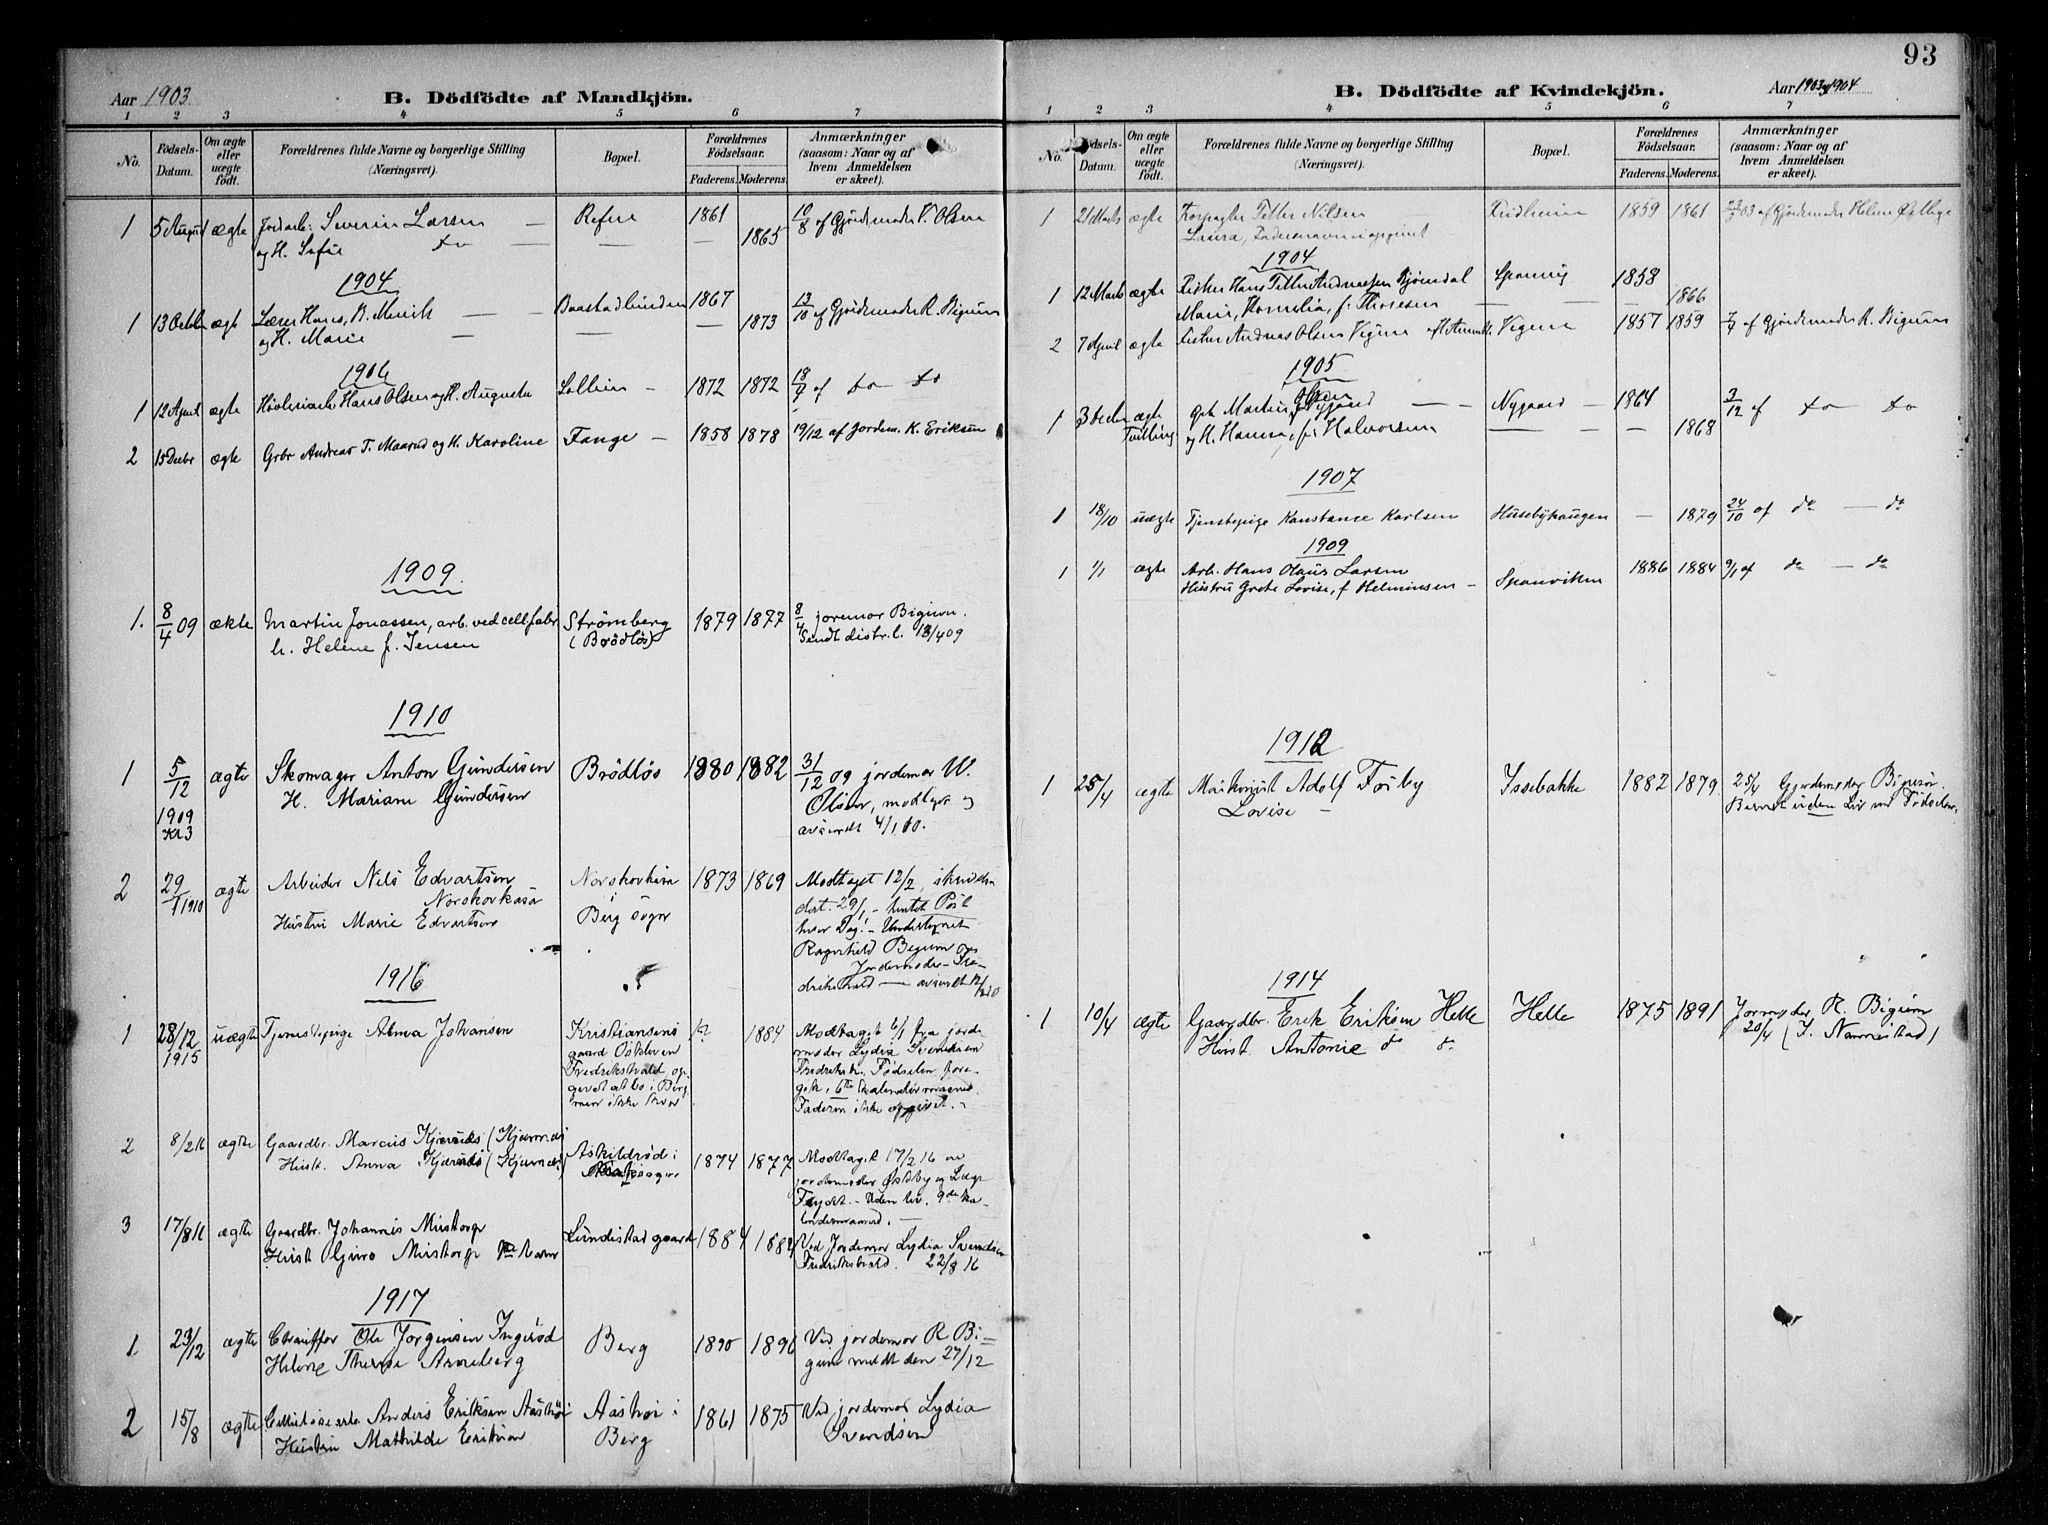 Aar 1903.
B. Dödfödte af Mandkjön.
1 2 3 4 5 6 7
No.
Födsels-Datum.
Om ægte eller uægte födt.
Forældrenes fulde Navne og borgerlige Stilling (Næringsvei).
Bopæl.
Forældrenes Födselsaar.
Faderens. Moderens.
Anmærkninger (saasom: Naar og af hvem Anmeldelsen er skeet).
1 5 August ægte Jordarb. Severin Larsen — Refne 1861 10/8 af Gjordemoder V. Olsen
og H. Sofie do — — 1865
1904
1 13 Octbr ægte Lærer Hans, B. Munik — Baastadlunden 1867 13/10 af Gjordemoder R. Bigum
og H. Marie — — — 1873
1906
1 12 April ægte Høvleriarb. Hans Olsen og H. Augusta — 1872 1872 18/4 af do do
2 15 Decbr ægte Grbr Andreas T. Maarud og H. Karoline Fange — 1858 1878 19/12 af Jordem. K. Eriksen
1909.
1. 8/4 09 ækte Martin Jonassen, arb. ved cellfabr. Strømberg 1879 1877 8/4 joremor Bigum.
h. Helene f. Jensen (Brödlös) Sendt distr. l. 13/4 09
1910
1 5/12 ægte Skomager Anton Gundersen Brödløs 1880 1882 31/12 09 jordemor W.
H. Mariane Gundersen Olsen, modtager og
1909 avsendt 4/1 10.
Kl 3
2 29/1 1910 ægte Arbeider Nils Edvartsen Norskovkasa 1873 1869 Modtaget 12/2,
Norskovkasa dat. 29/1 – hentet Post
Hustru Marie Edvartsen Berg sogn hver Dag! – Undertegnet
Ragnhild Bigum
Jordemoder – Fre-
drikshald — avsendt 12/2 10
1916
1 28/12 uægte Tjenestepige Alma Johansen Kristiansens 1884 Modtaget 6/1 fra jorde
1915 gaard Oskleven moder Lydia Svendsen
Fredrikshald, op- Fredriksh. Fødselen fore-
givet at bo i Berg gik i 6te Kalendermaaned.
men ikke Faderen ikke opgivet.
2 8/2 16 ægte Gaardbr. Marcus Kjærnes (Kjærnes) Askildrød i 1874 1877 Modtaget 17/2 16 av
Hust. Anna Kjærnes (Kjærnes) jordemoder Østby og Læge
Frydet. – Uden liv. 9de ka-
lendermaaned. —
3 17/8 16 ægte Gaardbr. Johannis Mustorp Lundestad gaard 1884 1884 Ved Jordemor Lydia Svendsen
Hust Guro Mustorp Fredrikshald. 22/8 16
1917
1. 23/12 ægte Chauffør Ole Jørgensen Ingerød Berg 1890 1896 Ved jordemor R Bi-
Helene Therese Anneberg gum meldt den 27/12
2 15/8 ægte Cellulosearb. Anders Eriksen Aashøi Aashøi i 1861 1875 Ved jordemor Lydia
Hustru Mathilde Eriksen Berg Svendsen
93
B. Dödfödte af Kvindekjön.
Aar 1903 og 1904
1 2 3 4 5 6 7
No.
Födsels-Datum.
Om ægte eller uægte födt.
Forældrenes fulde Navne og borgerlige Stilling (Næringsvei).
Bopæl.
Forældrenes Födselsaar.
Faderens. Moderens.
Anmærkninger (saasom: Naar og af hvem Anmeldelsen er skeet).
1 21 Marts ægte Petter Nilsen — Fridheim 1859 1861 03 af Gjordemoder Helene Østbye
Laura, Fadersnavn ei opgivet
1904
1 12 Marts ægte Fisker Hans Petter Andreasen Bjørndal Sponvig 1858
Marie, Kornelia, f. Thoresen — — — 1866
2 7 April ægte Fisker Andreas Olsen Vigene Vigene 1857 1859 7/4 af Gjordemoder R. Bigum
1905
1 3 Decbr ægte Gbr. Martin Olsen Nygaard — Nygaard — 1864 3/12 af do do
Tvilling og H. Hanna, f. Halvorsen — — 1868
1907
1 18/10 uægte Tjenstepige Konstance Karlsen Husebyhaugen — 1879 24/10 af do — do
1909
1 1/1 ægte Arb. Hans Olaus Larsen Sponviken 1886 1884 9/1 af do — do
Hustru Grete Lovise, f Helminsen —
1912
1 25/4 ægte Maskinist Adolf Fosby Issebakke 1882 1879 25/4 Gjordemoder Bigum.
Lovise — Barnet uden Liv ved Fødselen.
1914
1 10/4 ægte Gaardbr. Erik Eriksen Helle Helle 1875 1891 Jormoder R. Bigum
Hust. Antonie do do 20/4 (J. Nannestad)